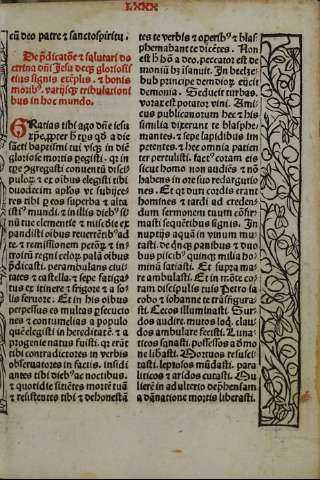 LXXX
cũ deo patre & sanctospiritu.
De p̃dicatõne & salutari do
ctrina dñi Jesu deq̃ gloriosis
eius signis exẽplis. & bonis
moribꝰ. varijsq̃ tribulationi
bus in hoc mundo.
Gratias tibi ago dñe iesu
xp̃e. propter hẽ q̃s q̃ a die
sacri baptismi tui vsq̃ in diẽ
gloriose mortis gessisti. qr in
tẽpe congregasti conuentũ disci
pulorũ & ex oibus elegisti tibi
duodecim aplos vt subijce
res tibi p eos superba & alta
istꝰ mundi. & in illis diebꝰ si
nu tue clementie & misc̃die ex
pandisti oibus reuertẽtibꝰ ad
te. & remissionem pctõrũ & in
troitũ regni celorũ palã oibus
p̃dicasti. perambulans ciui
tates & castella. & sepe fatigat
tus ex itinere & frigore & a so
lis feruore. Et in his oibus
perpessus es multas p̃secucio
nes & contumelias a populo
quẽ elegisti in hereditatẽ & a
progenie natus fuisti. qr erãt
tibi contradictores in verbis
obseruatores in factis. insidi
antes tibi diebꝰ ac noctibus.
& quotidie sitiẽtes mortẽ tuã
& resistentes tibi & dehonestã
tes te verbis & operibꝰ & blas
phemabant te dicẽtes. Non
est hõ a deo. peccator est de
moniũ hʒ & insanit. In beelze
bub principe demõiorũ eijcit
demonia. Seducit turbas.
vorax est potator vini. Ami
cus publicanorum hec & his
similia dixerunt te blasphe
mantes. & sepe lapidibus im
petentes. & hec omnia patien
ter pertulisti. factꝰ coram eis
sicut homo non audiẽs & nõ
habens in ore suo redargutio
nes. Et qr duri cordis erant
homines & tardi ad creden
dum sermonem tuum cõfir
masti sequẽtibus signis. In
nuptijs aquã in vinum mu
tasti. de qnq̃ panibus & duo
bus piscibꝰ quinq̃ milia ho
minũ satiasti. Et supra ma
re ambulasti. Et in mõte co
ram discipulis tuis Petro ia
cobo & iohanne te trãsfigura
sti. Cecos illuminasti. Sur
dos audire. mutos loq̃. clau
dos ambulare fecisti. Luna
ticos sanasti. possessos a dẽo
ne libasti. Mortuos resusci
tasti. leprosos mũdasti. para
liticos & aridos curasti. Mu
lierẽ in adulterio dep̃hensam
a dãnatione mortis liberasti.